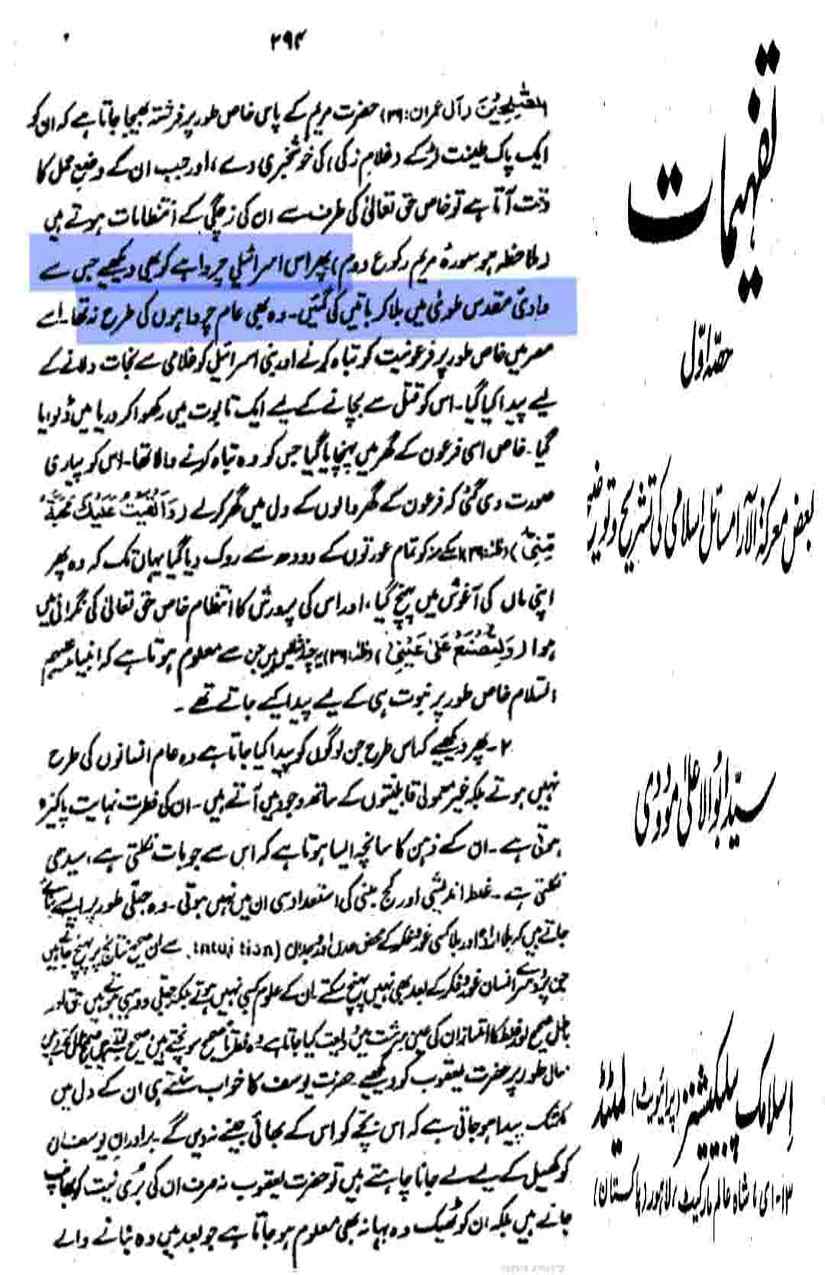 ۲۹۴
الصّٰلِحِیْنَ (آل عمران: ۳۹) حضرت مریم کے پاس خاص طور پر فرشتہ بھیجا جاتا ہے کہ ان کو
ایک پاک طینت لڑکے (غلام زکی) کی خوشخبری دے، اور جب ان کے وضع حمل کا
وقت آتا ہے تو خاص حق تعالیٰ کی طرف سے ان کی زچگی کے انتظامات ہوتے ہیں
(ملاحظہ ہو سورۂ مریم رکوع دوم) پھر اس اسرائیلی چرواہے کو بھی دیکھیے جس سے
وادیٔ مقدس طویٰ میں بلا کر باتیں کی گئیں۔ وہ بھی عام چرواہوں کی طرح نہ تھا۔ اسے
مصر میں خاص طور پر فرعونیت کو تباہ کرنے اور بنی اسرائیل کو غلامی سے نجات دلانے کے
لیے پیدا کیا گیا۔ اس کو قتل سے بچانے کے لیے ایک تابوت میں رکھوا کر دریا میں ڈلوایا
گیا۔ خاص اسی فرعون کے گھر میں پہنچایا گیا جس کو وہ تباہ کرنے والا تھا۔ اس کو پیاری
صورت دی گئی کہ فرعون کے گھر والوں کے دل میں گھر کرلے (وَاَلْقَیْتُ عَلَیْكَ مَحَبَّةً
مِّنِّیْ) (طٰہٰ: ۳۹) اس کے منہ کو تمام عورتوں کے دودھ سے روک دیا گیا یہاں تک کہ وہ پھر
اپنی ماں کی آغوش میں پہنچ گیا، اور اس کی پرورش کا انتظام خاص حق تعالیٰ کی نگرانی میں
ہوا (وَلِتُصْنَعَ عَلٰی عَیْنِیْ) (طٰہٰ: ۳۹) یہ چند مثالیں ہیں جن سے معلوم ہوتا ہے کہ انبیاء علیہم
السلام خاص طور پر نبوت ہی کے لیے پیدا کیے جاتے تھے۔
۲۔ پھر دیکھیے کہ اس طرح جن لوگوں کو پیدا کیا جاتا ہے وہ عام انسانوں کی طرح
نہیں ہوتے بلکہ غیر معمولی قابلیتوں کے ساتھ وجود میں آتے ہیں۔ ان کی فطرت نہایت پاکیزہ
ہوتی ہے۔ ان کے ذہن کا سانچہ ایسا ہوتا ہے کہ اس سے جو بات نکلتی ہے، سیدھی
نکلتی ہے۔ غلط اندیشی اور کج بینی کی استعداد ہی ان میں نہیں ہوتی۔ وہ جبلی طور پر ایسے بنائے
جاتے ہیں کہ بلا ارادہ اور بلا کسی غور و فکر کے محض حدس اور وجدان (Intuition) سے ان صحیح نتائج پر پہنچ جاتے ہیں
جن پر دوسرے انسان غور و فکر کے بعد بھی نہیں پہنچ سکتے۔ ان کے علوم کسبی نہیں ہوتے بلکہ جبلی و وہبی ہوتے ہیں۔ حق اور
باطل صحیح اور غلط کا امتیاز ان کی عین سرشت میں ودیعت کیا جاتا ہے، وہ فطرتاً صحیح سوچتے ہیں صحیح
مثال طور پر حضرت یعقوب کو دیکھیے۔ حضرت یوسف کا خواب سنتے ہی ان کے دل میں
کھٹک پیدا ہو جاتی ہے کہ اس بچے کو اس کے بھائی جینے نہ دیں گے۔ برادرانِ یوسف ان
کو کھیل کے لیے لے جانا چاہتے ہیں تو حضرت یعقوب نہ صرف ان کی بُری نیت کو بھانپ
جاتے ہیں بلکہ ان کو ٹھیک وہ بہانہ بھی معلوم ہو جاتا ہے جو بعد میں وہ بنانے والے
تفہیمات
حصّہ اوّل
بعض معرکۃ الآرا مسائل اسلامی کی تشریح و توضیح
سیّد ابوالاعلیٰ مودودی
اسلامک پبلیکیشنز (پرائیویٹ) لمیٹڈ
۱۳-ای، شاہ عالم مارکیٹ، لاہور (پاکستان)